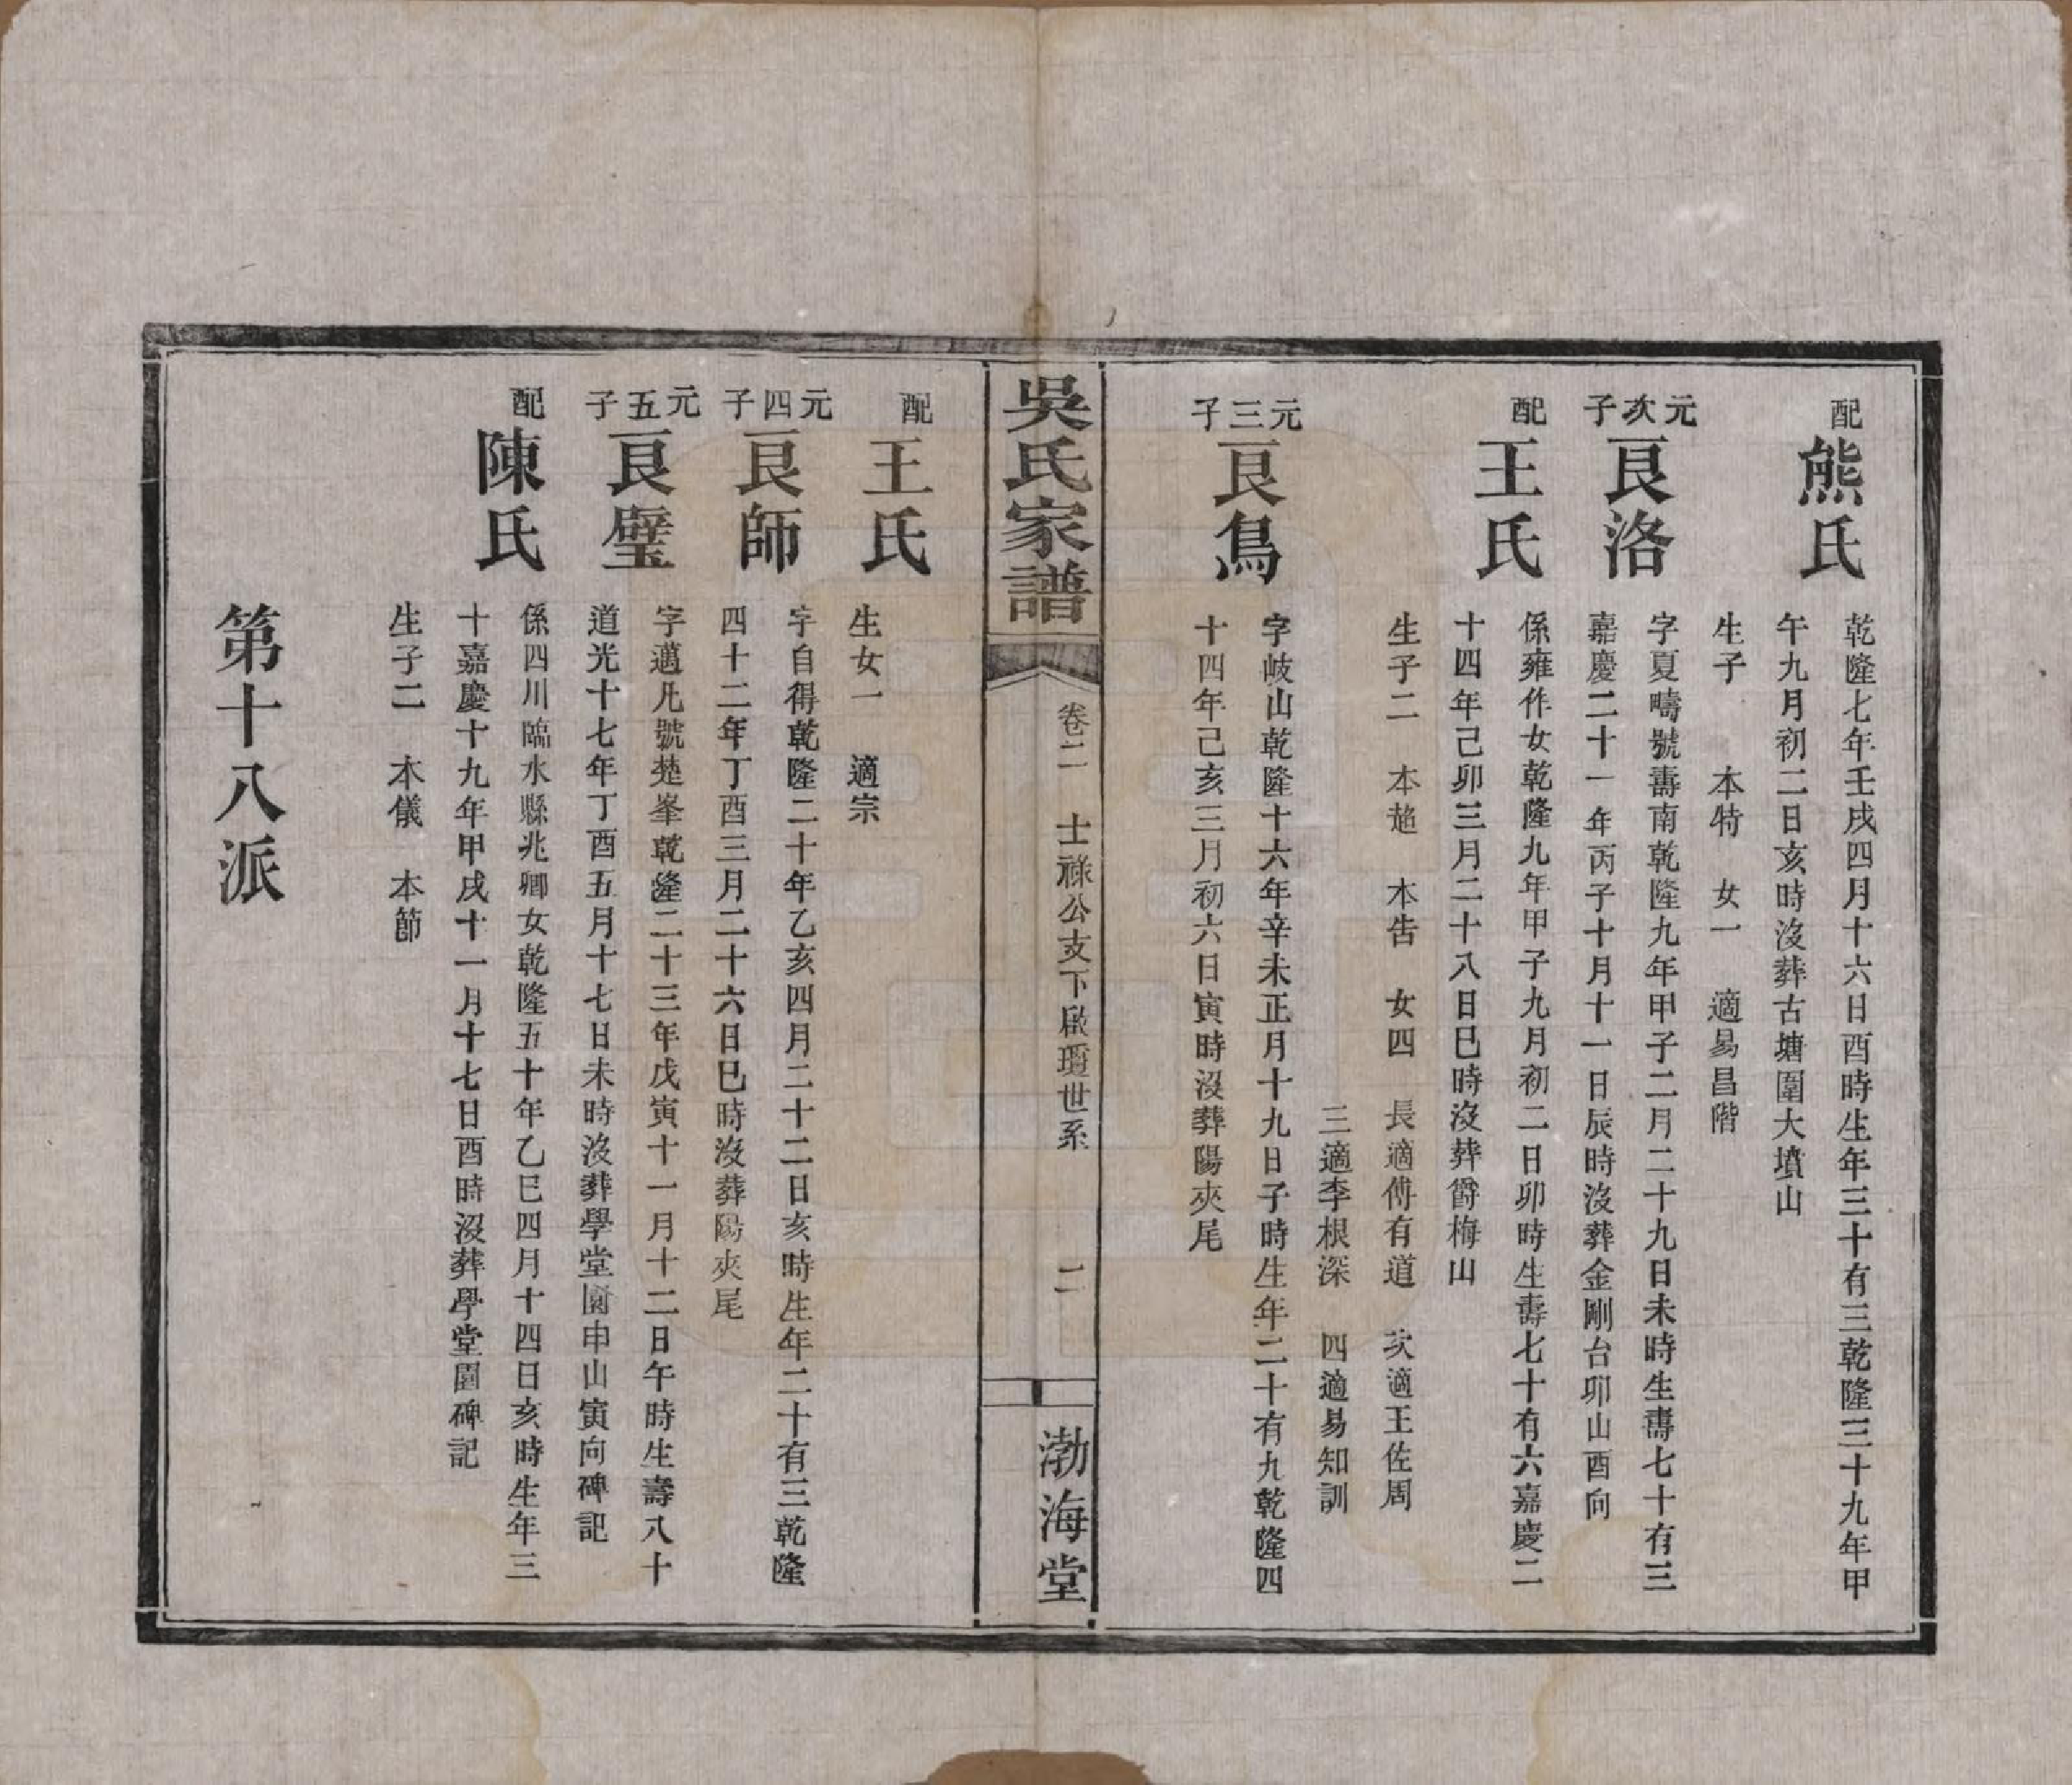 配
熊氏
乾隆七年壬戌四月十六日酉時生年三十有三乾隆三十九年甲
午九月初二日亥時沒葬古塘圍大墳山
生子　本特　女一　適易昌階
元次子
良洛
字夏疇號壽南乾隆九年甲子二月二十九日未時生壽七十有三
嘉慶二十一年丙子十月十一日辰時沒葬金剛台卯山酉向
配
王氏
係雍作女乾隆九年甲子九月初二日卯時生壽七十有六嘉慶二
十四年己卯三月二十八日巳時沒葬爵梅山
生子二　本趙　本告　女四　長適傅有道　次適王佐周
三適李根深　四適易知訓
元三子
良鳥
字岐山乾隆十六年辛未正月十九日子時生年二十有九乾隆四
十四年己亥三月初六日寅時沒葬陽夾尾
吳氏家譜
卷二　士祿公支下啟瓊世系　二
渤海堂
配
王氏
生女一　適宗
元四子
良師
字自得乾隆二十年乙亥四月二十二日亥時生年二十有三乾隆
四十二年丁酉三月二十六日巳時沒葬陽夾尾
元五子
良璧
字邁凡號楚峯乾隆二十三年戊寅十一月十二日午時生壽八十
道光十七年丁酉五月十七日未時沒葬學堂園申山寅向碑記
配
陳氏
係四川臨水縣兆卿女乾隆五十年乙巳四月十四日亥時生年三
十嘉慶十九年甲戌十一月十七日酉時沒葬學堂園碑記
生子二　本儀　本節
第十八派